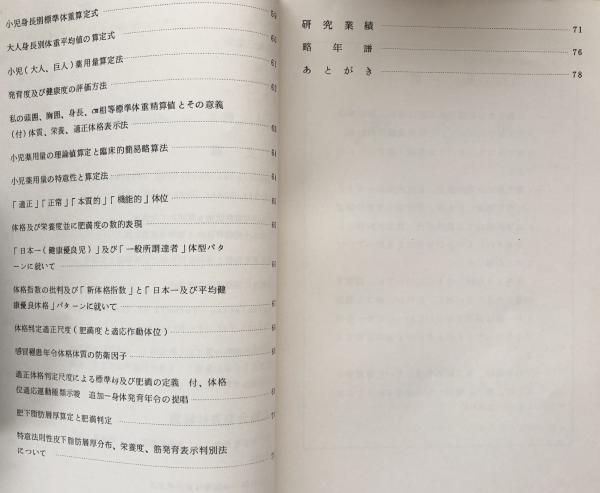 小児身長別標準体重算定式
大人身長別体重平均値の算定式
小児(大人、巨人)薬用量算定法 61
発育度及び健康度の評価方法
私の頭囲、胸囲、身長、cm相等標準体重精算値とその意義
(付)体質、栄養、適正体格表示法
小児薬用量の理論値算定と臨床的簡易略算法
小児薬用量の特意性と算定法
「適正」「正常」「本質的」「機能的」体位
体格及び栄養度並に肥満度の数的表現
「日本一(健康優良児)」及び「一般所謂達者」体型パタ
ーンに就いて
体格指数の批判及び「新体格指数」と「日本一及び平均健
康優良体格」パターンに就いて
体格判定適正尺度(肥満度と適応作動体位)
感冒罹患年令体格体質の防衛因子
適正体格判定尺度による標準kg及び肥満の定義 付、体格
位適応運動種類示唆 追加−身体発育年令の提唱
肥下脂肪層厚算定と肥満判定
特意法則性皮下脂肪層厚分布、栄養度、筋発育表示判別法
について
研究業績 71
略年譜 76
あとがき 78